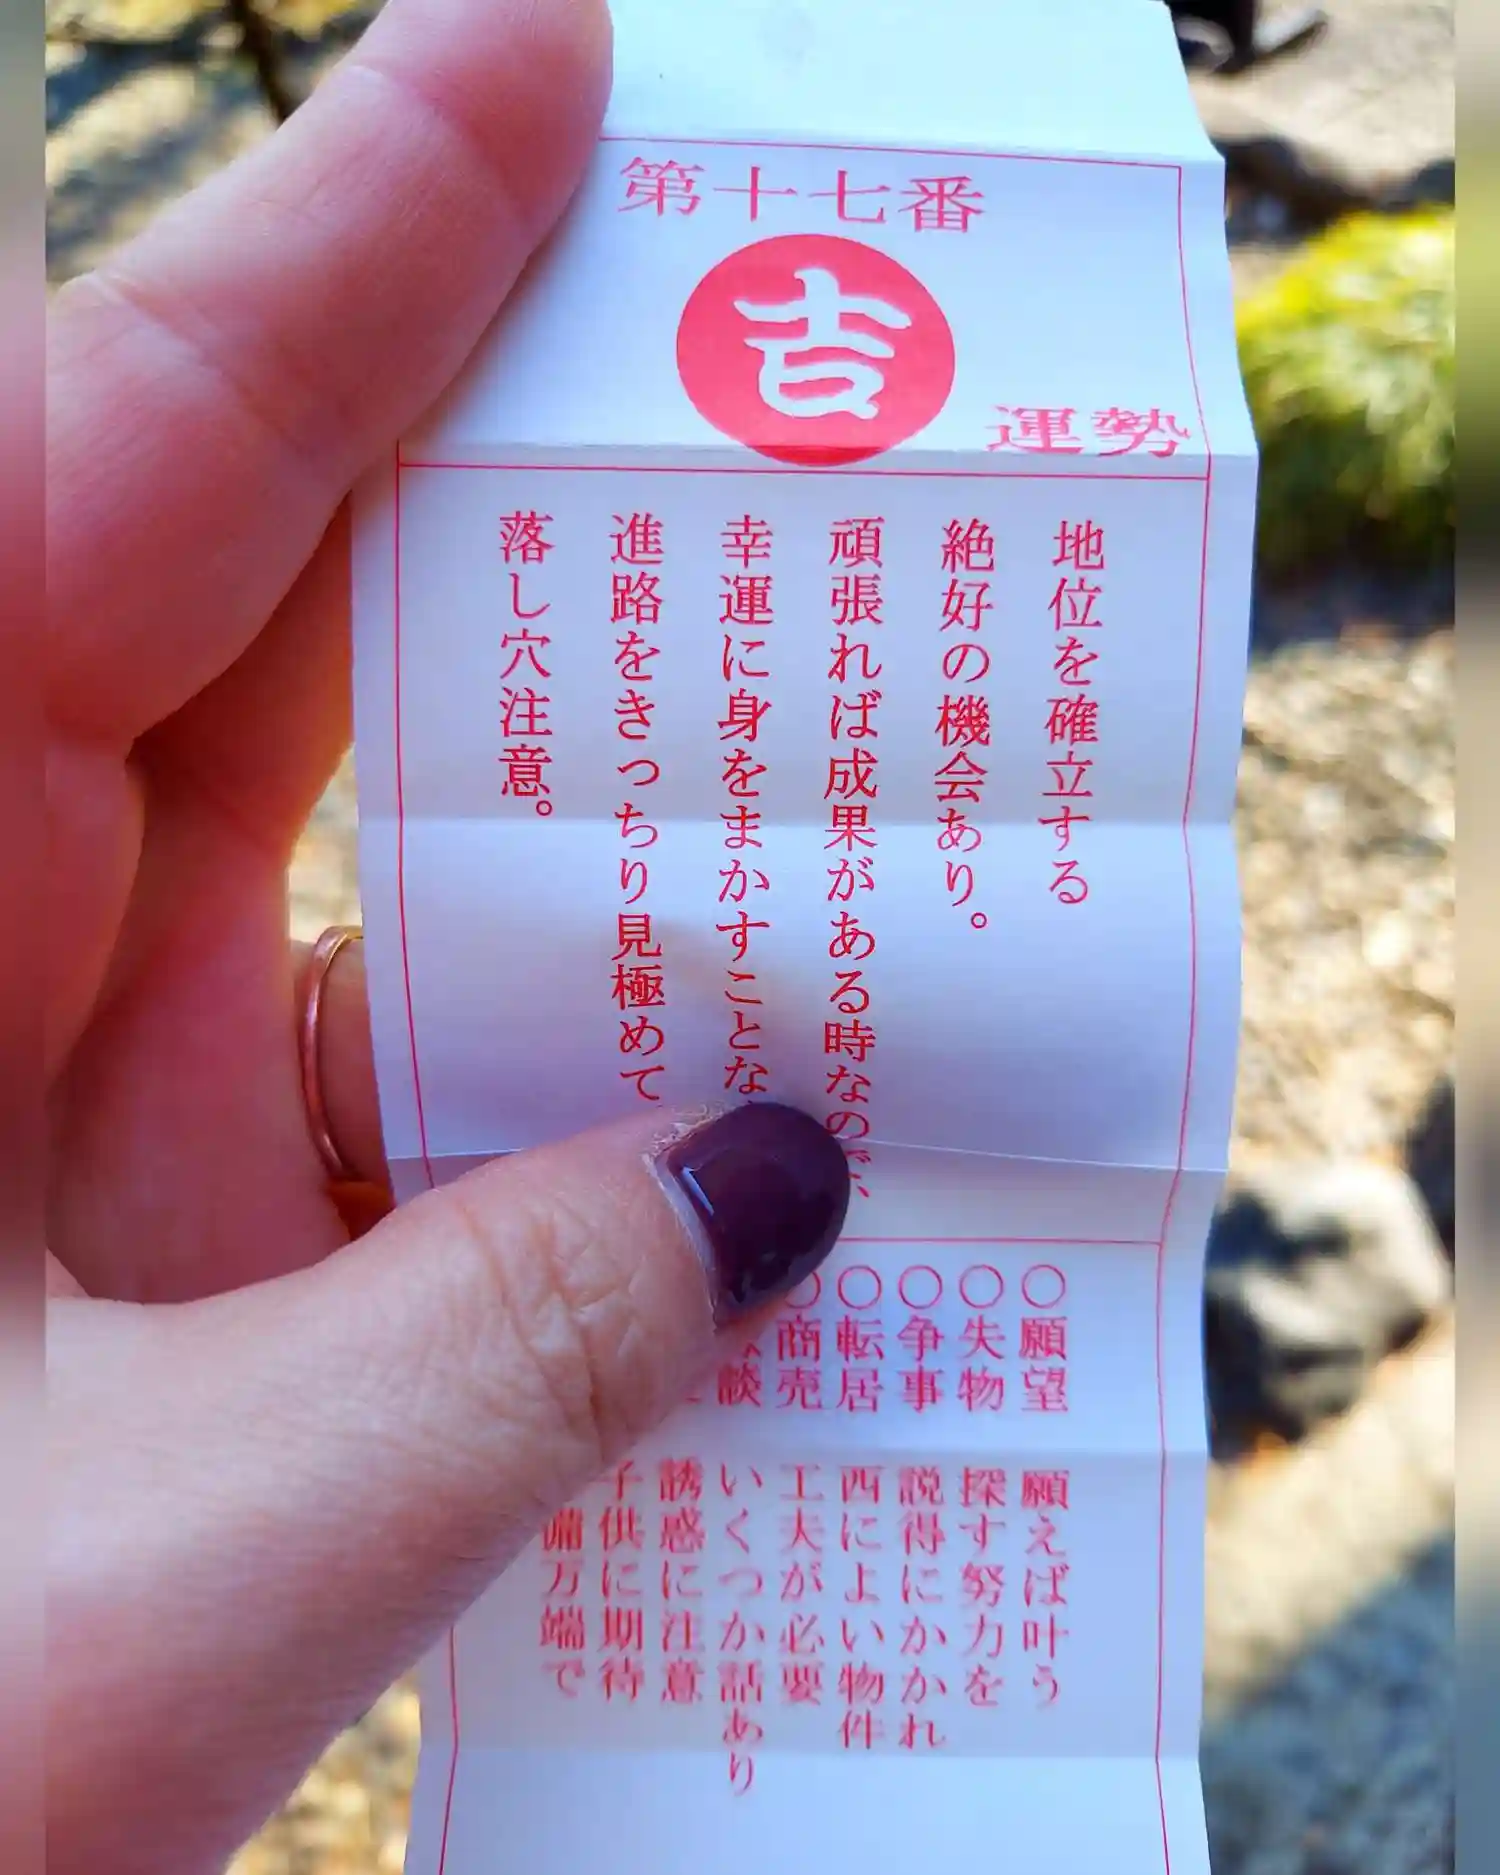 第十七番
吉
運勢
地位を確立する
絶好の機会あり。
頑張れば成果がある時なので、
幸運に身をまかすことな
進路をきっちり見極めて
落し穴注意。
○願望 願えば叶う
○失物 探す努力を
○争事 説得にかかれ
○転居 西によい物件
○商売 工夫が必要
談 いくつか話あり
誘惑に注意
子供に期待
備万端で